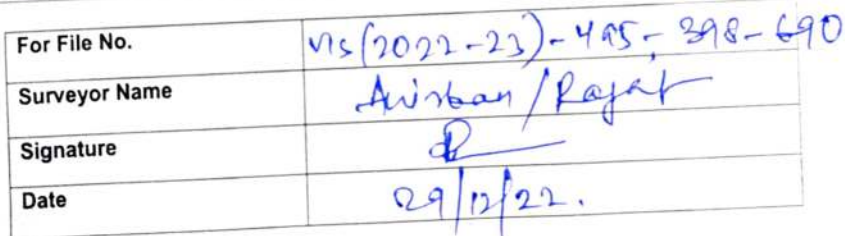 For File No. VIS(2022-23)-495-398-690
Surveyor Name Anirban/Rajat
Signature
Date 29/12/22.